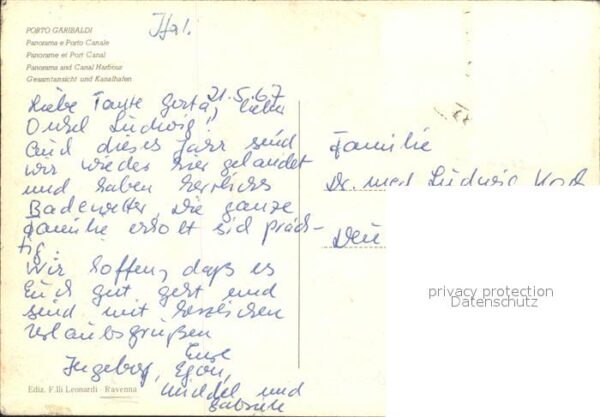 PORTO GARIBALDI
Panorama e Porto Canale
Panorame et Port Canal
Panorama and Canal Harbour
Gesamtansicht und Kanalhafen
Ital.
21.5.67
Liebe Tante Gerta, lieber
Onkel Ludwig!
Auch dieses Jahr sind
wir wieder hier gelandet
und haben herrliches
Badewetter, die ganze
Familie erholt sich präch-
tig.
Wir hoffen, daß es
Euch gut geht und
sind mit herzlichen
Urlaubsgrüßen
Eure
Ingeborg, Egon,
und
Gabriele
Ediz. F.lli Leonardi - Ravenna
Familie
Dr. med. Ludwig
privacy protection
Datenschutz